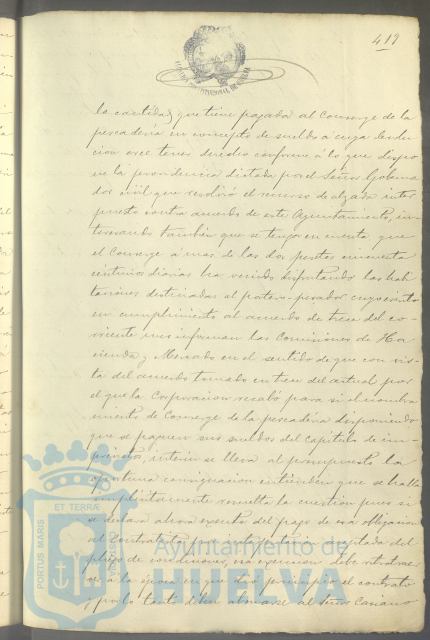 419
la cantidad que tiene pagada al Conserge de la
pescadería en concepto de sueldo a cuya devolu
cion cree tener derecho conforme á lo que dispo
ne la providencia dictada por el Señor Goberna
dor civil que resolvió el recurso de alzada inter
puesto contra acuerdo de este Ayuntamiento, in
teresando tambien que se tenga en cuenta que
el Conserge a mas de las dos pesetas cincuenta
centimos diarios ha venido disfrutando las habi
taciones destinadas al portero-pesador cuyo escrito
en cumplimiento al acuerdo de trece del co
rriente informan las Comisiones de Ha
cienda y Mercado en el sentido de que con vis
ta del acuerdo tomado en trece del actual por
el que la Corporacion recabó para si el nombra
miento de Conserge de la pescadería disponiendo
que se paguen sus sueldos del capitulo de im
previstos, interin se lleva al presupuesto la
oportuna consignacion entienden que se halla
implicitamente resuelta la cuestion pues si
se declara ahora exento del pago de esa obligacion
al Contratista por
pliego de condiciones, esa exencion debe retrotraer
se á la época en que dió principio el contrato
y por lo tanto deben abonarse al Señor
PORTUS MARIS ET TERRÆ CUSTODIA
Ayuntamiento de
HUELVA